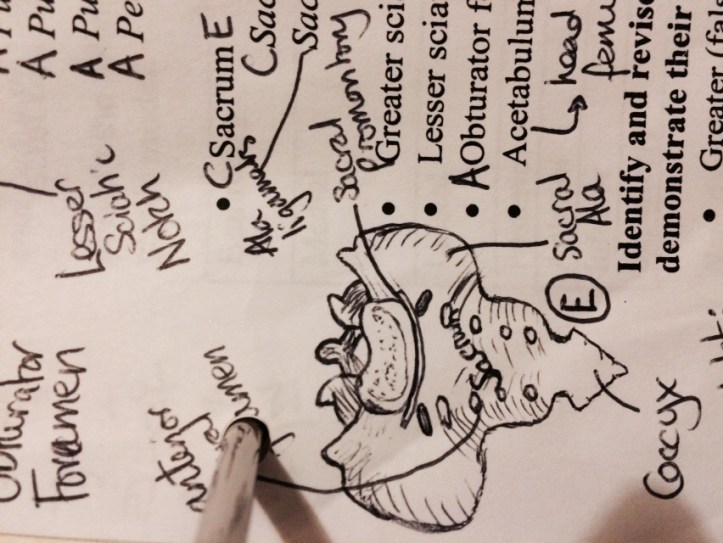 Obturator
Foramen
A Pu
A Pu
A Pe
Lesser
Sciatic
Notch
anterior
• C Sacrum E
C Sac
Sac
Ala
ligaments
sacral
promontory
• Greater sci
• Lesser scia
• A Obturator f
• Acetabulum
↳ head
femu
Sacrum
Sacral
Ala
E
Coccyx
Identify and revise
demonstrate their
• Greater (fal